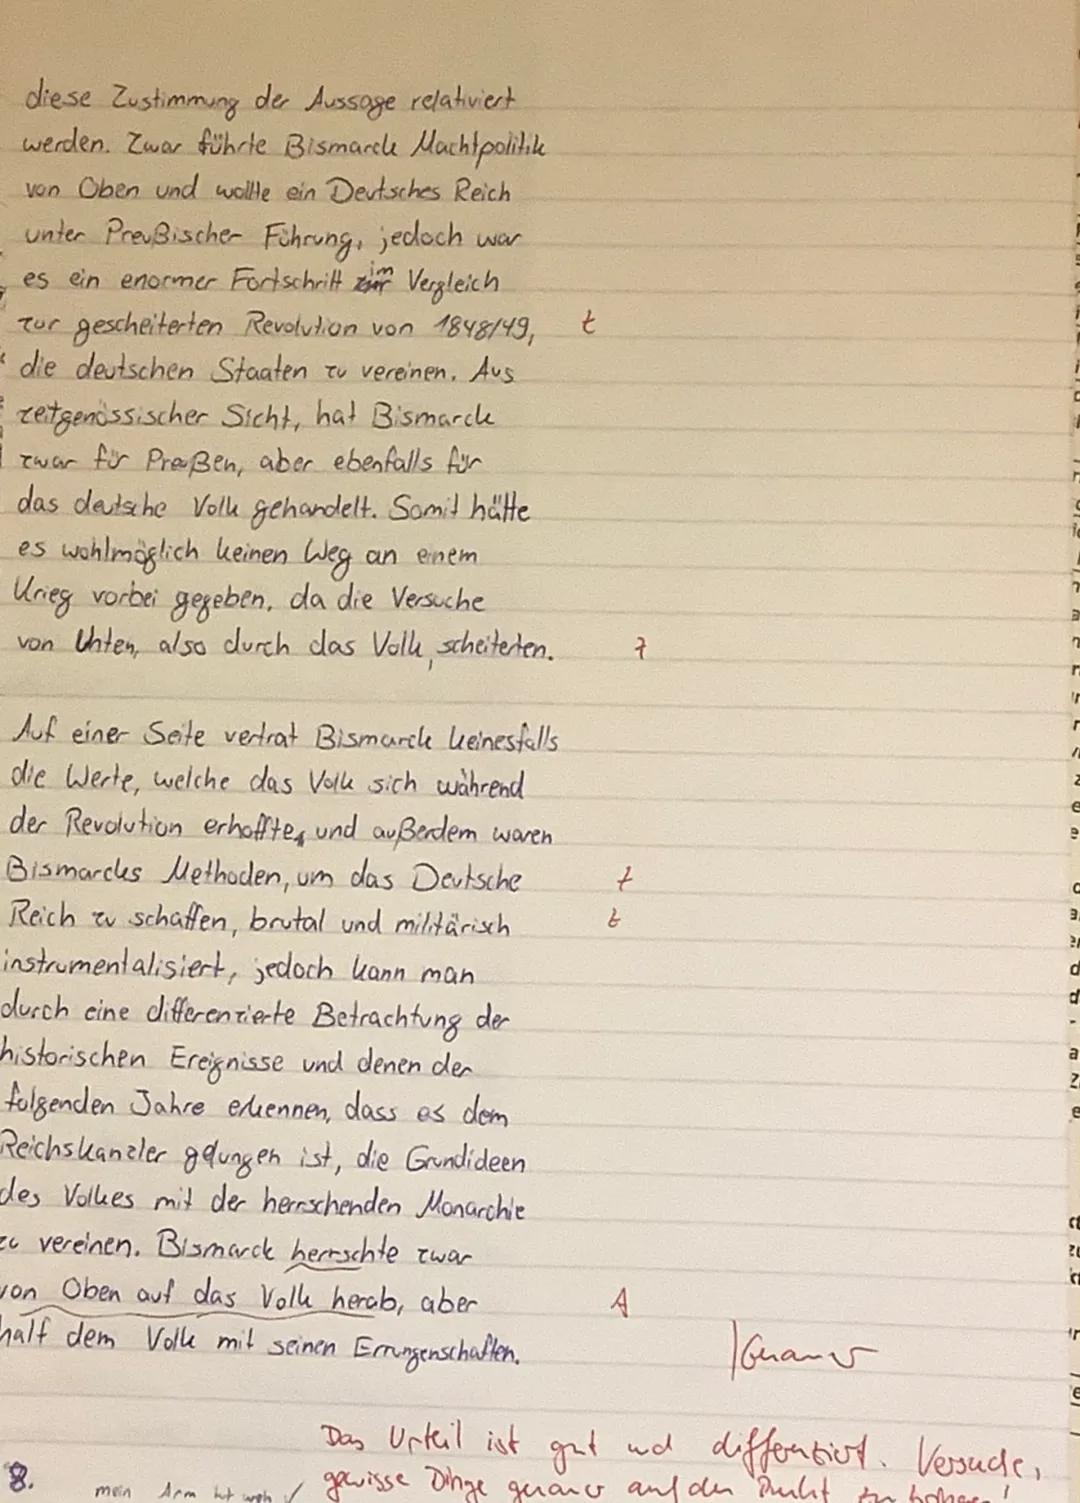 diese Zustimmung der Aussage relativiert
werden. Zwar führte Bismarck Machtpolitik
von Oben und wollte ein Deutsches Reich
unter Preußischer Führung, jedoch war
es ein enormer Fortschritt im Vergleich
zur gescheiterten Revolution von 1848/49, t
die deutschen Staaten zu vereinen. Aus
zeitgenössischer Sicht, hat Bismarck
zwar für Preußen, aber ebenfalls für
das deutsche Volk gehandelt. Somit hätte
es wohlmöglich keinen Weg an einem
Krieg vorbei gegeben, da die Versuche
von Unten, also durch das Volk, scheiterten. 7
Auf einer Seite vertrat Bismarck keinesfalls
die Werte, welche das Volk sich während
der Revolution erhoffte, und außerdem waren
Bismarcks Methoden, um das Deutsche t
Reich zu schaffen, brutal und militärisch t
instrumentalisiert, jedoch kann man
durch eine differenzierte Betrachtung der
historischen Ereignisse und denen der
folgenden Jahre erkennen, dass es dem
Reichskanzler gelungen ist, die Grundideen
des Volkes mit der herrschenden Monarchie
zu vereinen. Bismarck herrschte zwar
von Oben auf das Volk herab, aber A
half dem Volk mit seinen Errungenschaften. Genauer
Das Urteil ist gut und differenziert. Versuche,
8. mein Arm tut weh ✓ gewisse Dinge genauer auf den Punkt zu bringen!